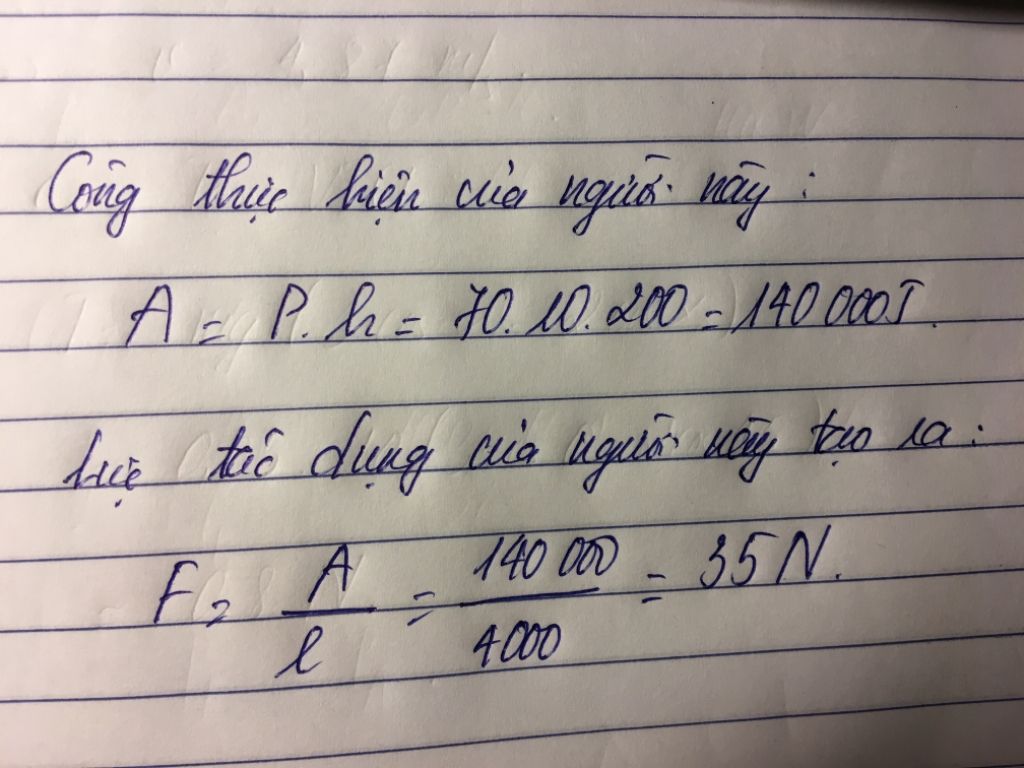 Công thực hiện của người này :
A = P. h = 70. 10. 200 = 140 000J.
Lực tác dụng của người này tạo ra :
F = A / l = 140 000 / 4000 = 35 N.